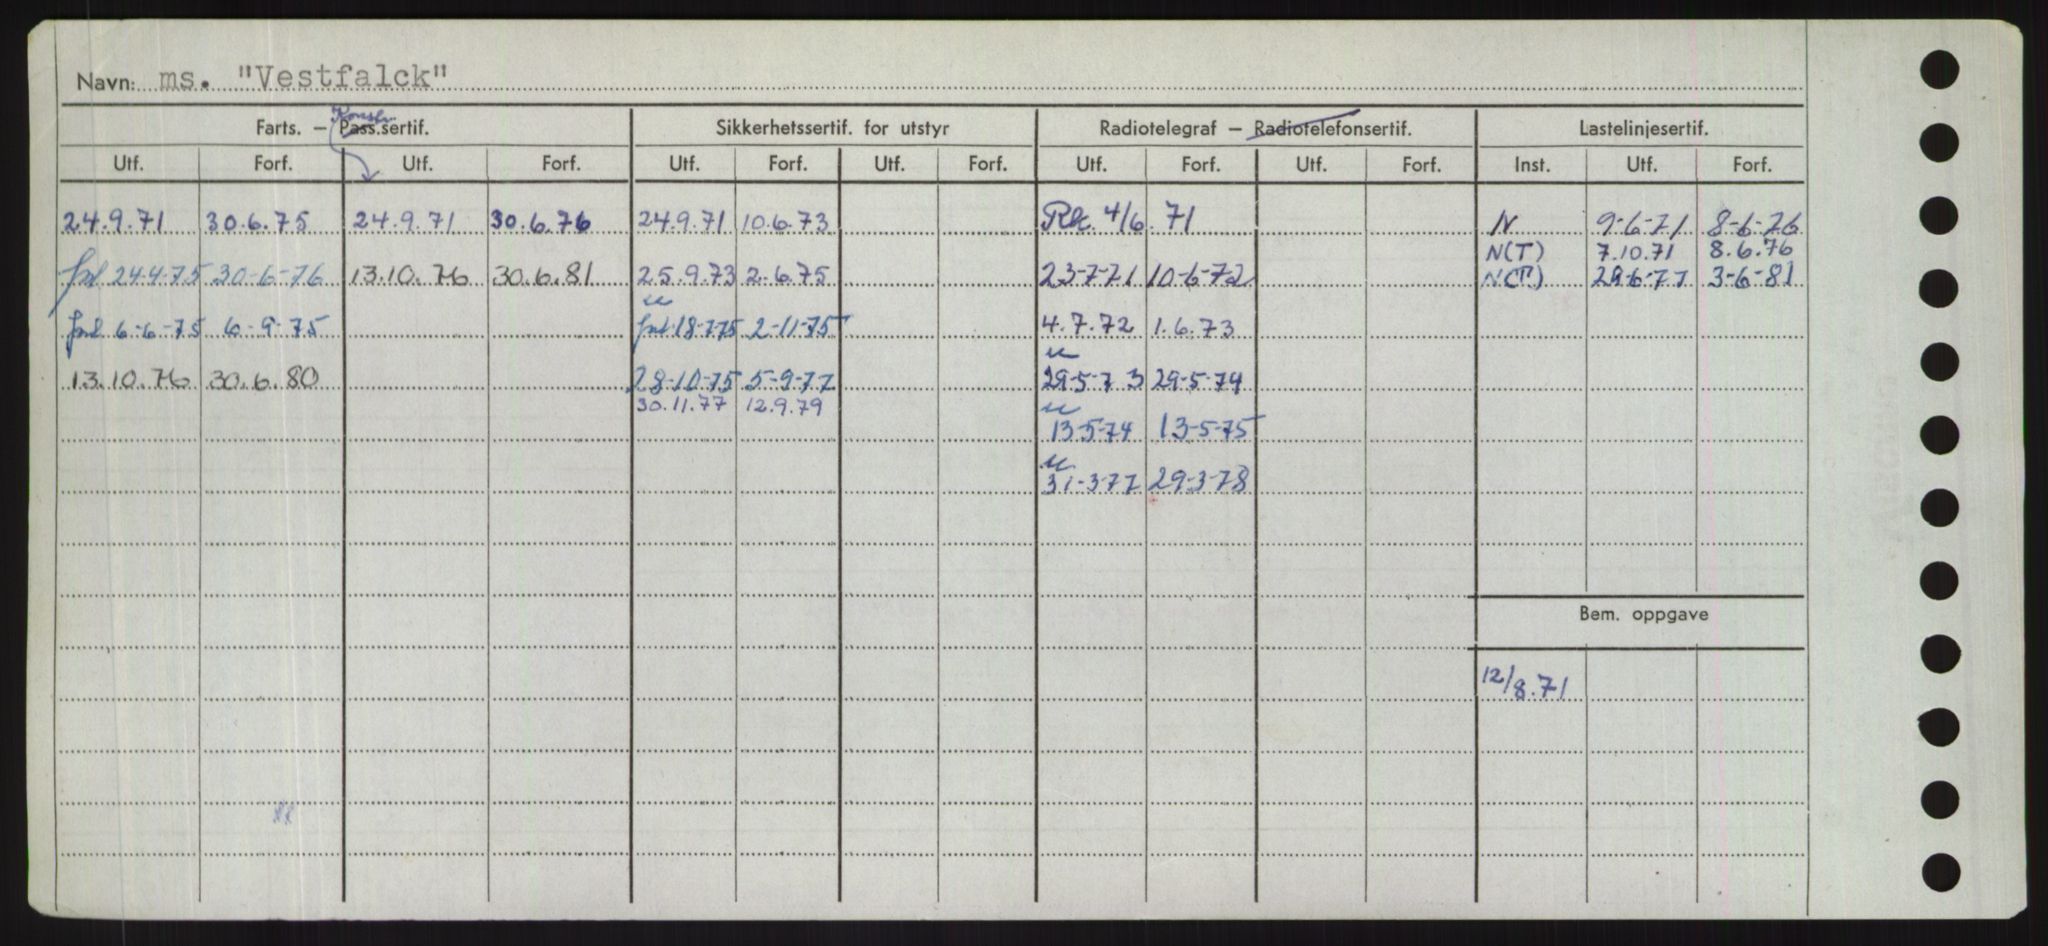 Navn: ms. "Vestfalck"
Farts. – Konstr. Pass.sertif. Sikkerhetssertif. for utstyr Radiotelegraf – Radiotelefonsertif. Lastelinjesertif.
Utf. Forf. Utf. Forf. Utf. Forf. Utf. Forf. Utf. Forf. Utf. Forf. Inst. Utf. Forf.
24.9.71 30.6.75 24.9.71 30.6.76 24.9.71 10.6.73 4/6.71 N 9-6-71 8-6-76
N(T) 7.10.71 8.6.76
24-4-75 30-6-76 13.10.76 30.6.81 25.9.73 2.6.75 23-7-71 10-6-72 N(T) 29-6-77 3-6-81
6-6-75 6-9-75 18-7-75 2-11-75 4.7.72 1.6.73
13.10.76 30.6.80 28-10-75 5-9-77 29-5-73 29-5-74
30.11.77 12.9.79
13-5-74 13-5-75
31-3-77 29-3-78
Bem. oppgave
12/8.71